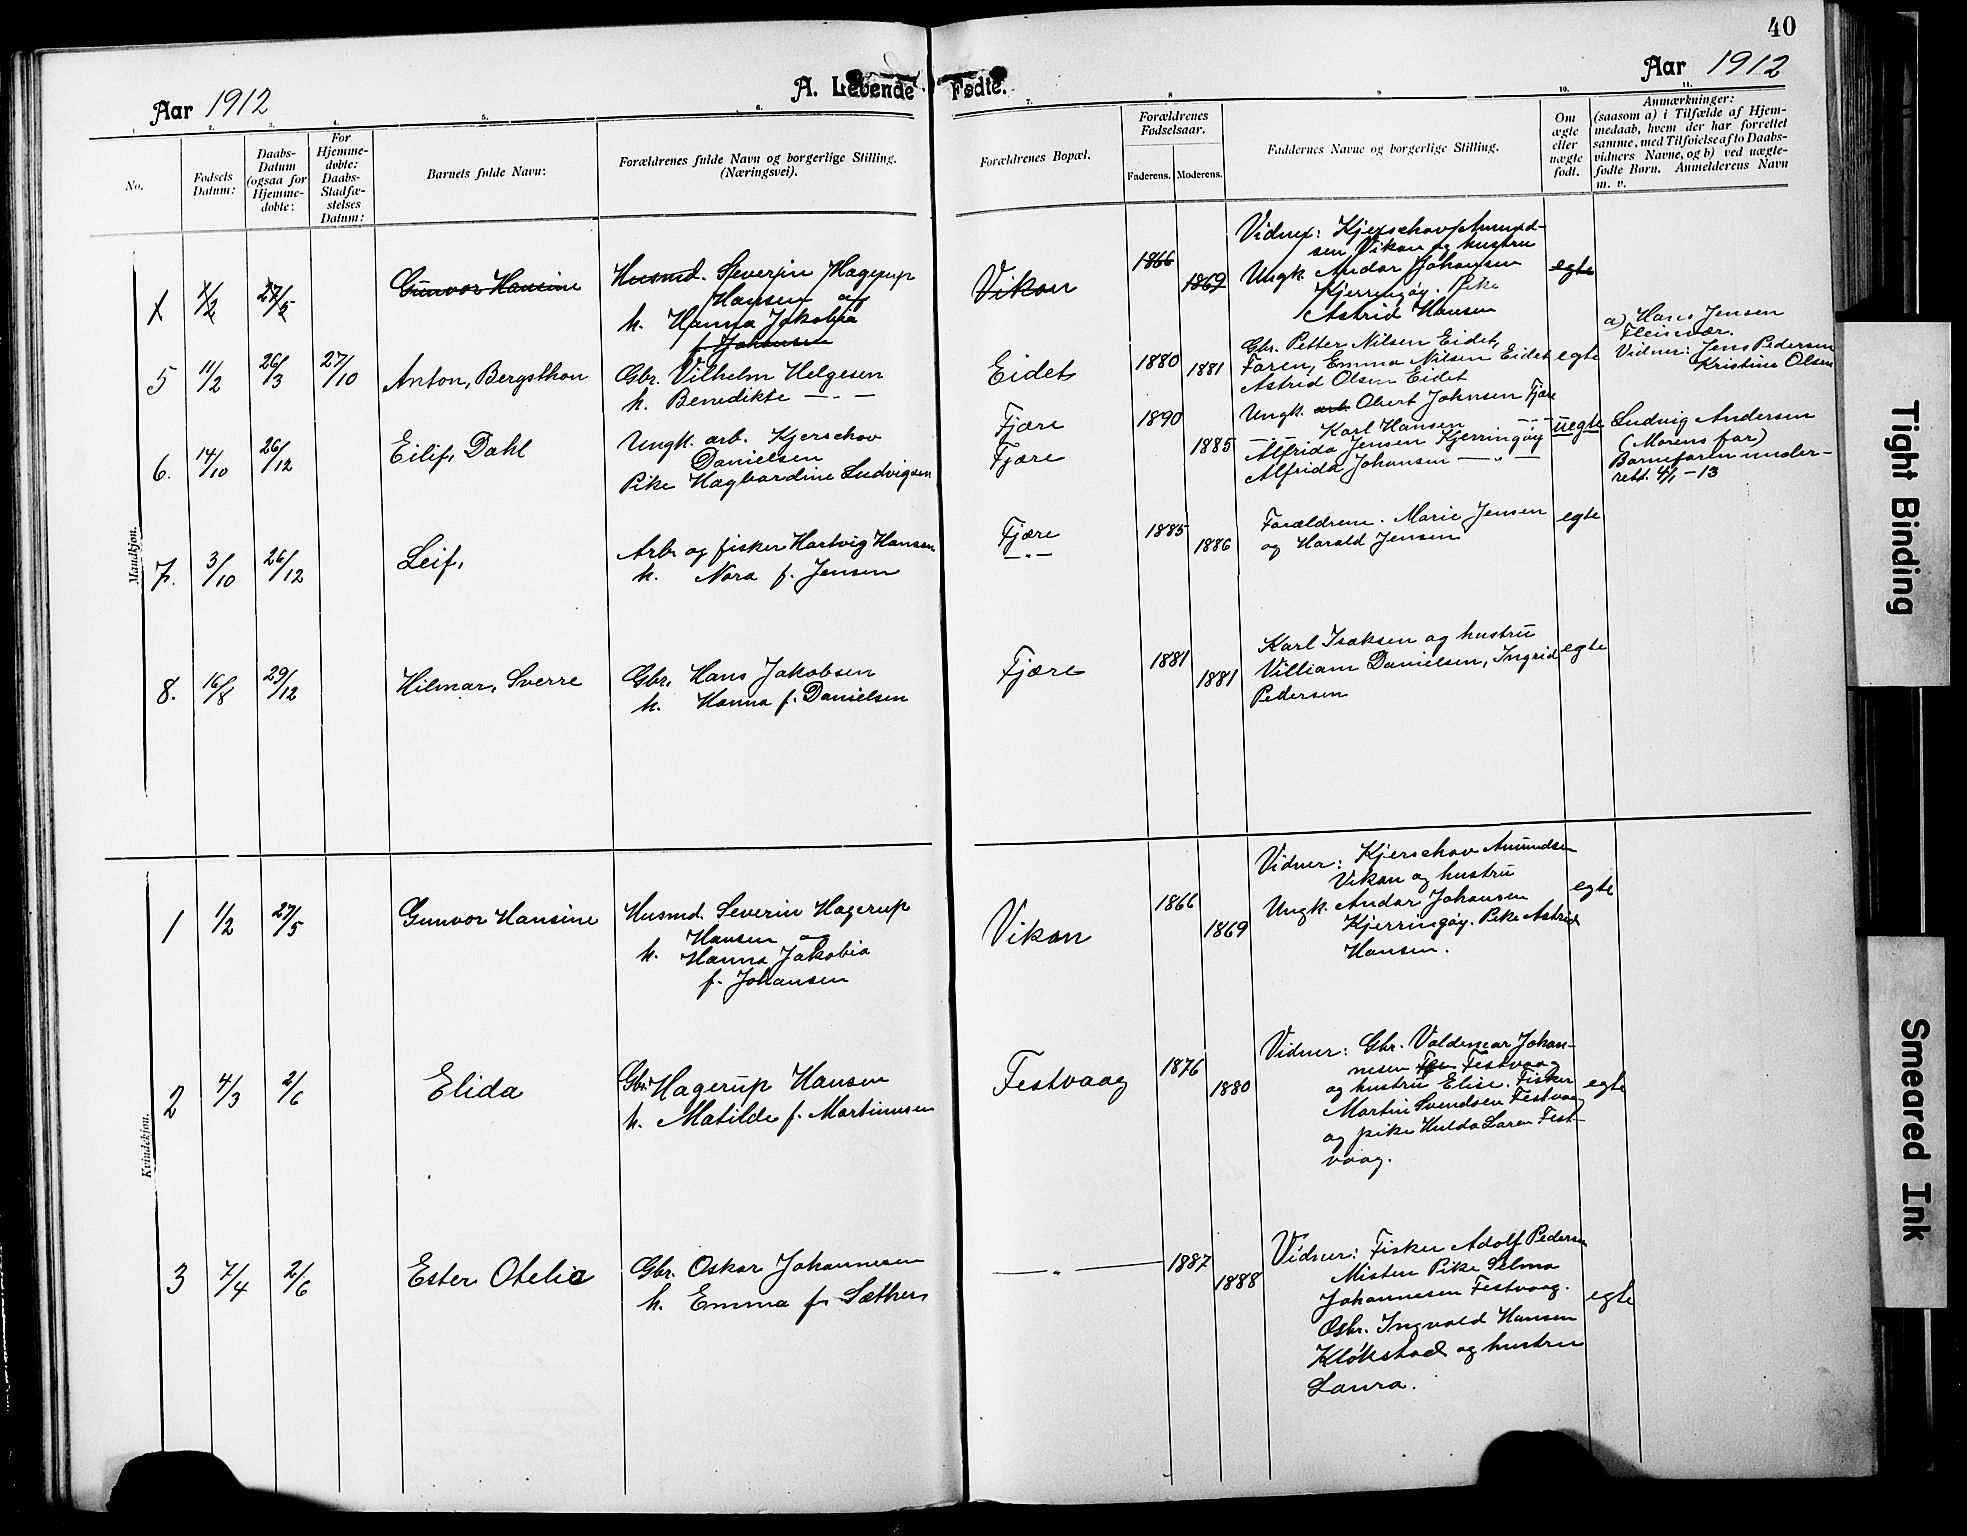 40
Aar 1912
A. Levende Fødte.
Aar 1912
1. 2. 3. 4. 5. 6. 7. 8. 9. 10. 11.
No.
Fødsels Datum:
Daabs-Datum (ogsaa for Hjemme-døbte:
For Hjemme-døbte: Daabs-Stadfæ-stelses Datum:
Barnets fulde Navn:
Forældrenes fulde Navn og borgerlige Stilling. (Næringsvei).
Forældrenes Bopæl.
Forældrenes Fødselsaar.
Faderens. Moderens.
Faddernes Navne og borgerlige Stilling.
Om ægte eller uægte født.
Anmærkninger:
(saasom a) i Tilfælde af Hjem-
medaab, hvem der har forrettet
samme, med Tilføielse af to Daabs-
vidners Navne, og b) ved uægte-
fødte Børn. Anmelderens Navn
m. v.
Mandkjøn.
1/2 27/5 Gunvor Hansine
Husmd. Severin Hagerup
Hansen og
h. Hanna Jakobia
f. Johansen
Vikan
1866
1869
Vidner: Kjerschov Amund-
sen Vikan og hustru
Ungk. Andor Johansen
Kjerringøy. Pike
Astrid Hansen
egte
5 11/2 26/3 27/10 Anton, Bergsthon
Gbr. Vilhelm Helgesen
h. Benedikte — „ —
Eidet
1880
1881
Gbr. Petter Nilsen Eidet,
Faren, Emma Nilsen Eidet
Astrid Olsen Eidet
egte
a) Hans Jensen
Fleisvær.
Vidner: Jens Pedersen
Kristine Olsen
6. 14/10 26/12 Eilif, Dahl
Ungk. arb. Kjerschov
Danielsen
Pike Hagbardine Ludvigsen
Fjære
Fjære
1890
1885
Ungk. arb. Obert Johnsen Fjære
— „ — Karl Hansen — „ —
Alfrida Jensen Kjerringøy
Alfrida Johansen — „ —
uegte
Ludvig Andersen
(Morens far)
Barnefaren under-
rett. 4/1 – 13
7. 3/10 26/12 Leif,
Arb. og fisker Hartvig Hansen
h. Nora f. Jensen
Fjære
— „ —
1885
1886
Forældrene. Marie Jensen
og Harald Jensen
egte
8. 16/8 29/12 Hilmar, Sverre
Gbr. Hans Jakobsen
h. Hanna f. Danielsen
Fjære
1881
1881
Karl Isaksen og hustru
Villiam Danielsen, Ingrid
Pedersen
egte
Kvindekjøn.
1 1/2 27/5 Gunvor Hansine
Husmd. Severin Hagerup
Hansen og
h. Hanna Jakobia
f. Johansen
Vikan
1866
1869
Vidner: Kjerschov Amundsen
Vikan og hustru
Ungk. Andor Johansen
Kjerringøy. Pike Astrid
Hansen.
egte
2 4/3 2/6 Elida
Gbr. Hagerup Hansen
h. Matilde f. Martinusen
Festvaag
1876
1880
Vidner: Gbr. Valdemar Johan-
nesen Festvaag
og hustru Elise. Fisker
Martin Svendsen Festvaag
og pike Hulda Laren Fest-
vaag.
egte
3 7/4 2/6 Ester Otelie
Gbr. Oskar Johannesen
h. Emma f. Sæther
— „ —
1887
1888
Vidner: Fisker Adolf Pedersen
Misten Pike Selma
Johannesen Festvaag.
Gbr. Ingvald Hansen
Kløkstad og hustru
Laura.
egte
Tight Binding
Smeared Ink